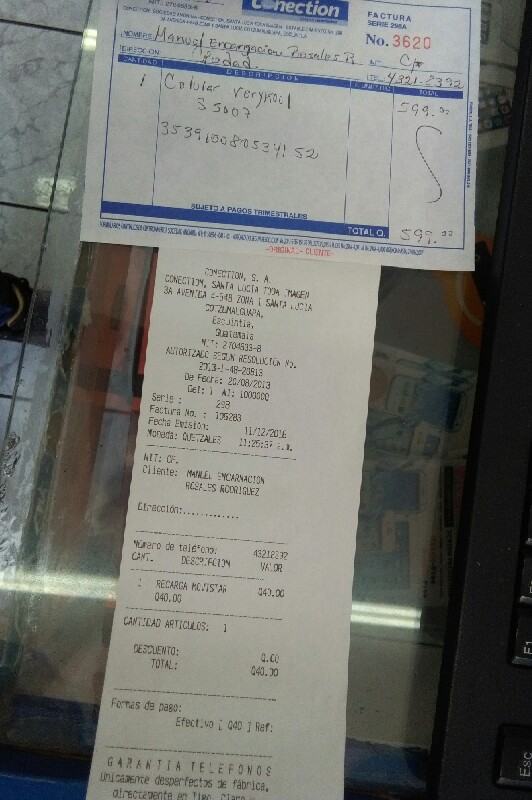 Conection
FACTURA
SERIE 298A
No. 3620
NOMBRE: Manuel Encarnacion Rosales R. NIT: C/F
DIRECCION: Ciudad. TEL: 4321-8392
CANTIDAD DESCRIPCION P. UNITARIO TOTAL
1 Celular verykool 599.00
S5007
353910080534152
SUJETO A PAGOS TRIMESTRALES
TOTAL Q. 599.00
-ORIGINAL- CLIENTE-
CONECTION, S. A.
CONECTION, SANTA LUCIA TODA IMAGEN
3A AVENIDA 4-548 ZONA 1 SANTA LUCIA
COTZUMALGUAPA,
Escuintla,
Guatemala
NIT: 2704633-8
AUTORIZADO SEGUN RESOLUCION No.
2013-1-48-20813
De Fecha: 20/08/2013
Del: 1 Al: 1000000
Serie : 298
Factura No. : 105283
Fecha Emisión: 11/12/2016
Moneda: QUETZALES 11:25:37 a.m.
NIT: CF.
Cliente: MANUEL ENCARNACION
ROSALES RODRIGUEZ
Dirección:.............
Número de teléfono: 43218392
CANT. DESCRIPCION VALOR
1 RECARGA MOVISTAR Q40.00
Q40.00
CANTIDAD ARTICULOS: 1
DESCUENTO: 0.00
TOTAL: Q40.00
Formas de pago:
Efectivo [ Q40 ] Ref:
GARANTIA TELEFONOS
Únicamente desperfectos de fábrica,
directamente en Tigo, Claro
F1
Esc